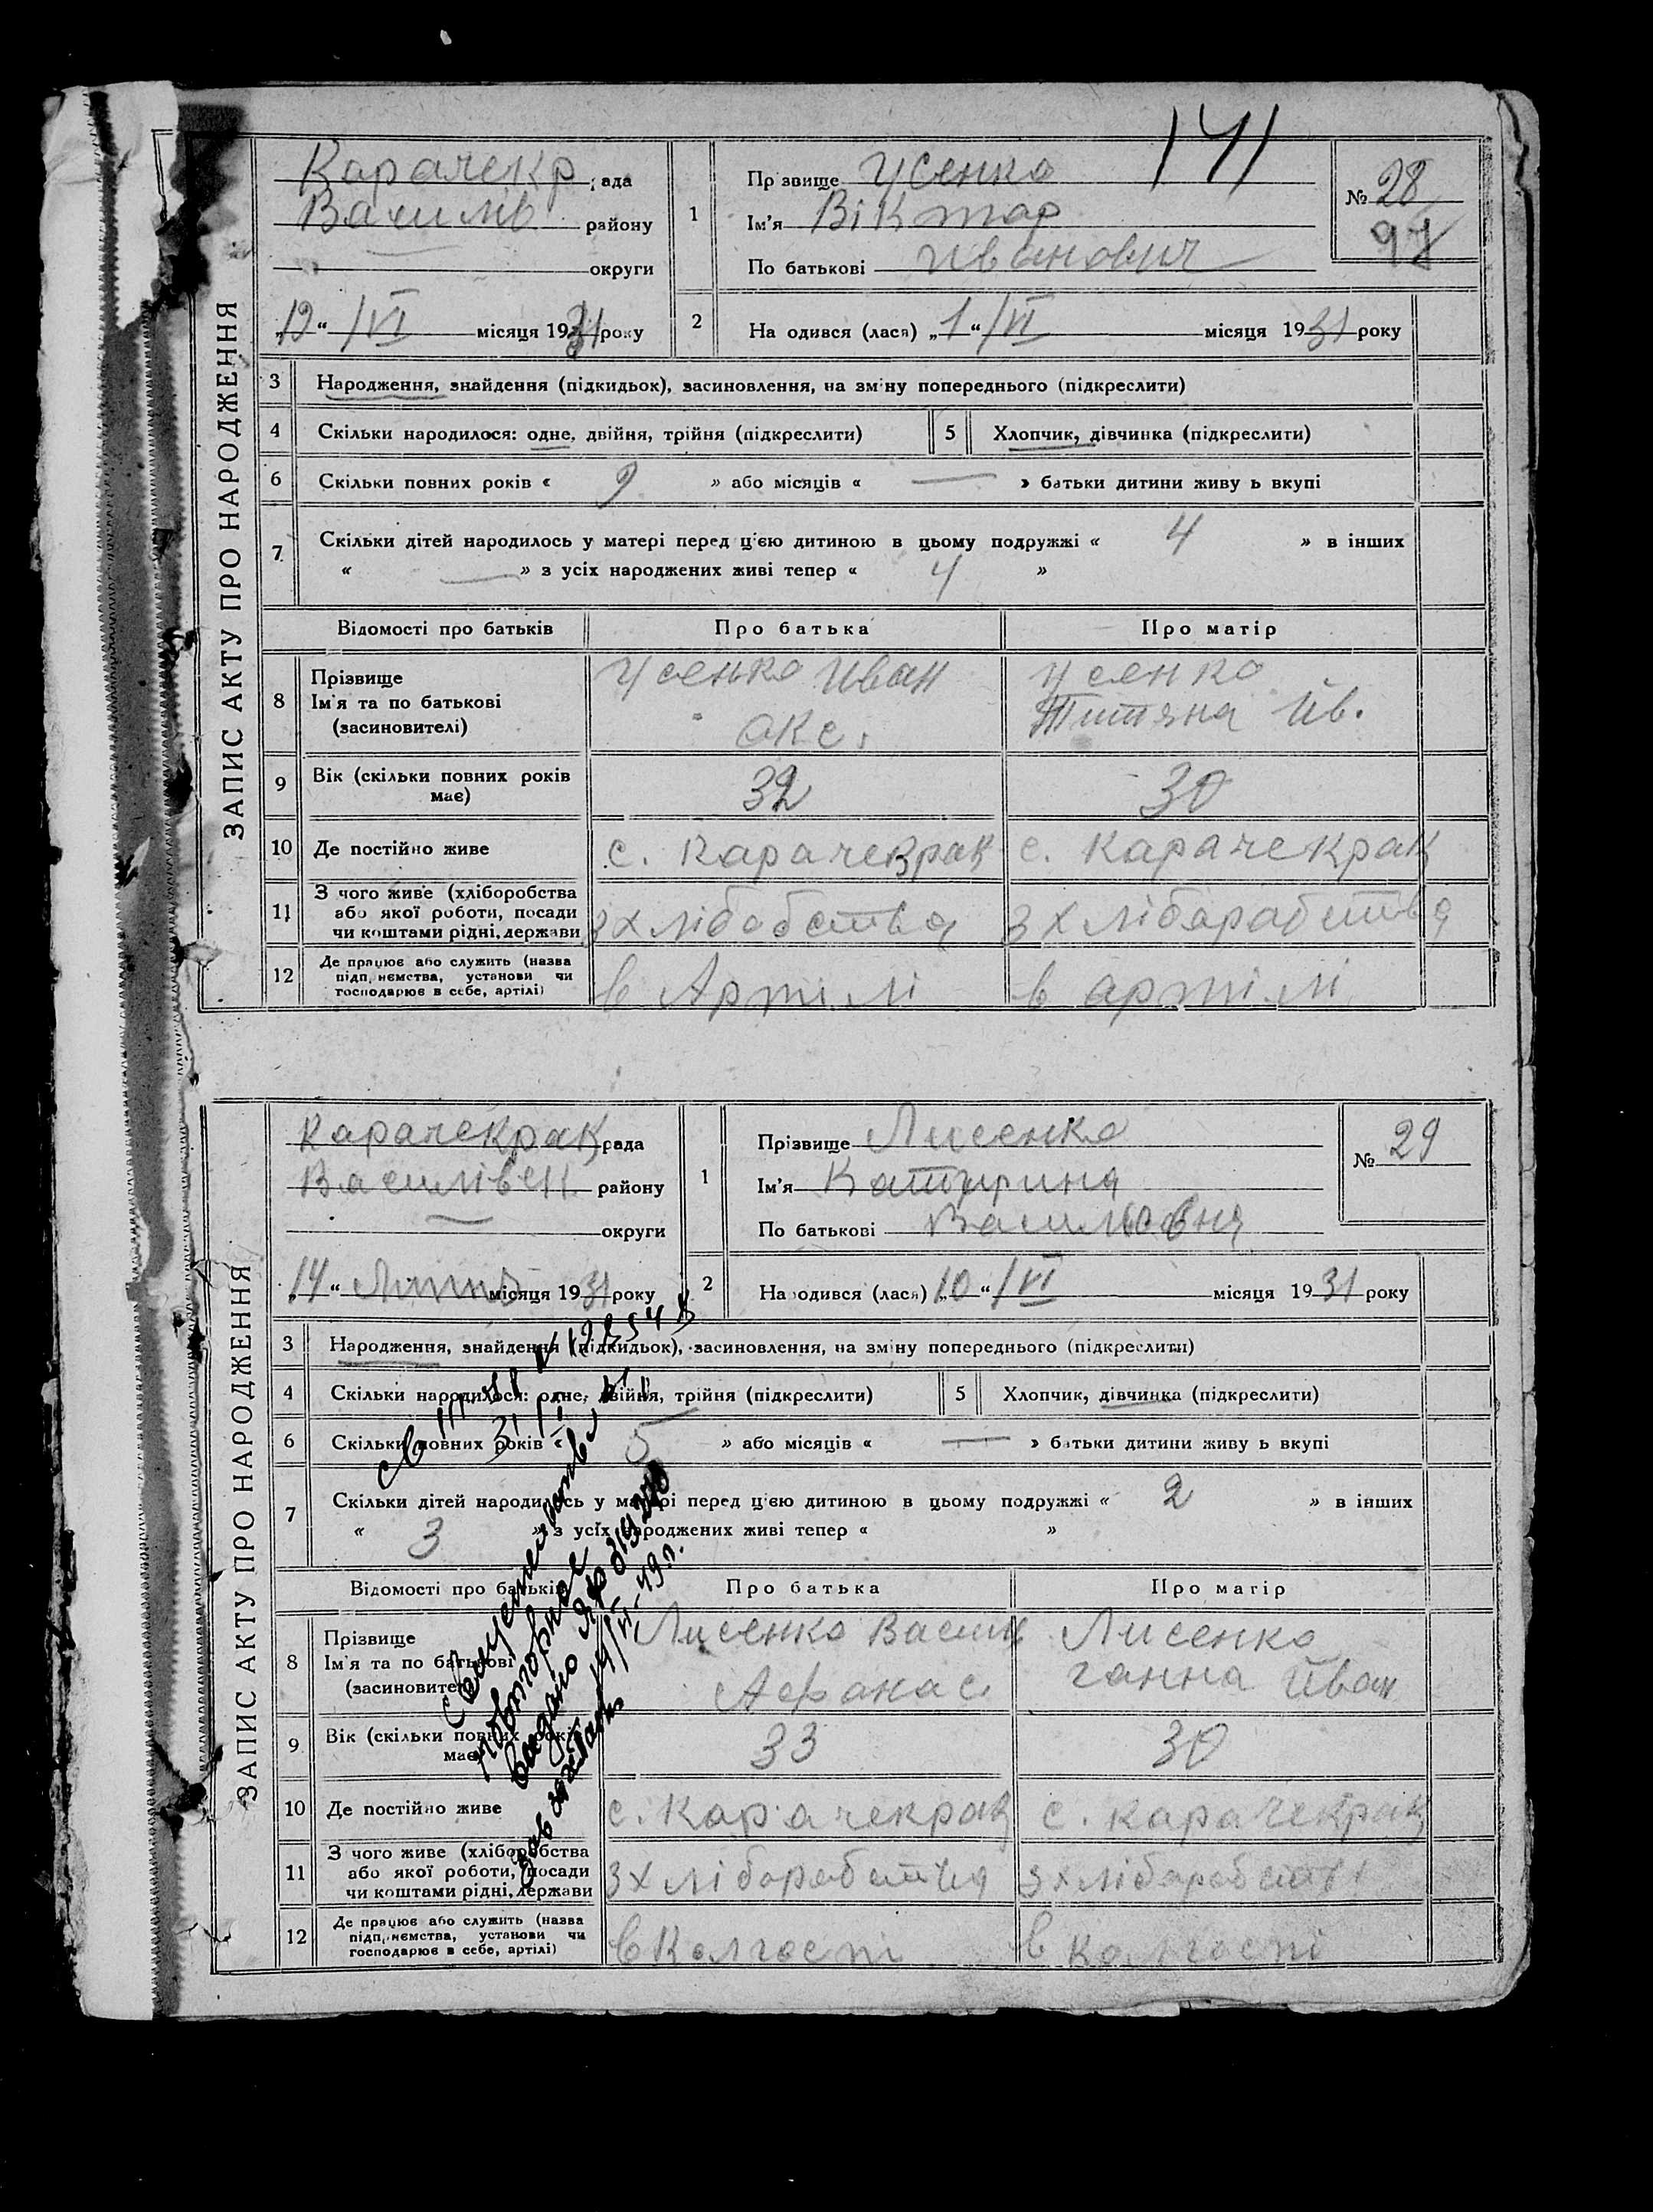 141
ЗАПИС АКТУ ПРО НАРОДЖЕННЯ
Карачекр рада
Василів району
округи
„12“ /VI місяця 1931 року
1 Прізвище Усенко
Ім'я Віктор
По батькові Иванович
№ 28
97
2 Народився (лася) „1“ /VI місяця 1931 року
3 Народження, знайдення (підкидьок), засиновлення, на зміну попереднього (підкреслити)
4 Скільки народилося: одне, двійня, трійня (підкреслити) 5 Хлопчик, дівчинка (підкреслити)
6 Скільки повних років « 9 » або місяців « — » батьки дитини живуть вкупі
7 Скільки дітей народилось у матері перед цією дитиною в цьому подружжі « 4 » в інших
« — » з усіх народжених живі тепер « 4 »
Відомості про батьків Про батька Про матір
8 Прізвище
Ім'я та по батькові
(засиновителі)
Усенко Иван
Окс.
Усенко
Титяна Ив.
9 Вік (скільки повних років має) 32 30
10 Де постійно живе с. Карачекрак с. Карачекрак
11 З чого живе (хліборобства
або якої роботи, посади
чи коштами рідні, держави
з хлібобства з хліборабства
12 Де працює або служить (назва
підприємства, установи чи
господарює в себе, артілі)
в Артилі в артілі
ЗАПИС АКТУ ПРО НАРОДЖЕННЯ
Карачекрак рада
Василівск району
округи
„14“ місяця 1931 року
1 Прізвище Лисенко
Ім'я Катирина
По батькові Василовня
№ 29
2 Народився (лася) „10“ /VI місяця 1931 року
3 Народження, знайдення (підкидьок), засиновлення, на зміну попереднього (підкреслити)
4 Скільки народилося: одне, двійня, трійня (підкреслити) 5 Хлопчик, дівчинка (підкреслити)
6 Скільки повних років « 5 » або місяців « — » батьки дитини живуть вкупі
7 Скільки дітей народилось у матері перед цією дитиною в цьому подружжі « 2 » в інших
« 3 » з усіх народжених живі тепер « »
Відомості про батьків Про батька Про матір
8 Прізвище
Ім'я та по батькові
(засиновителі)
Лисенко Васил
Афанас
Лисенко
Ганна Иван
9 Вік (скільки повних років має) 33 30
10 Де постійно живе с. Карачекрак с. Карачекрак
11 З чого живе (хліборобства
або якої роботи, посади
чи коштами рідні, держави
з хліборобства з хліборобств
12 Де працює або служить (назва
підприємства, установи чи
господарює в себе, артілі)
в Колгосп в колгоспі
повторное
видано